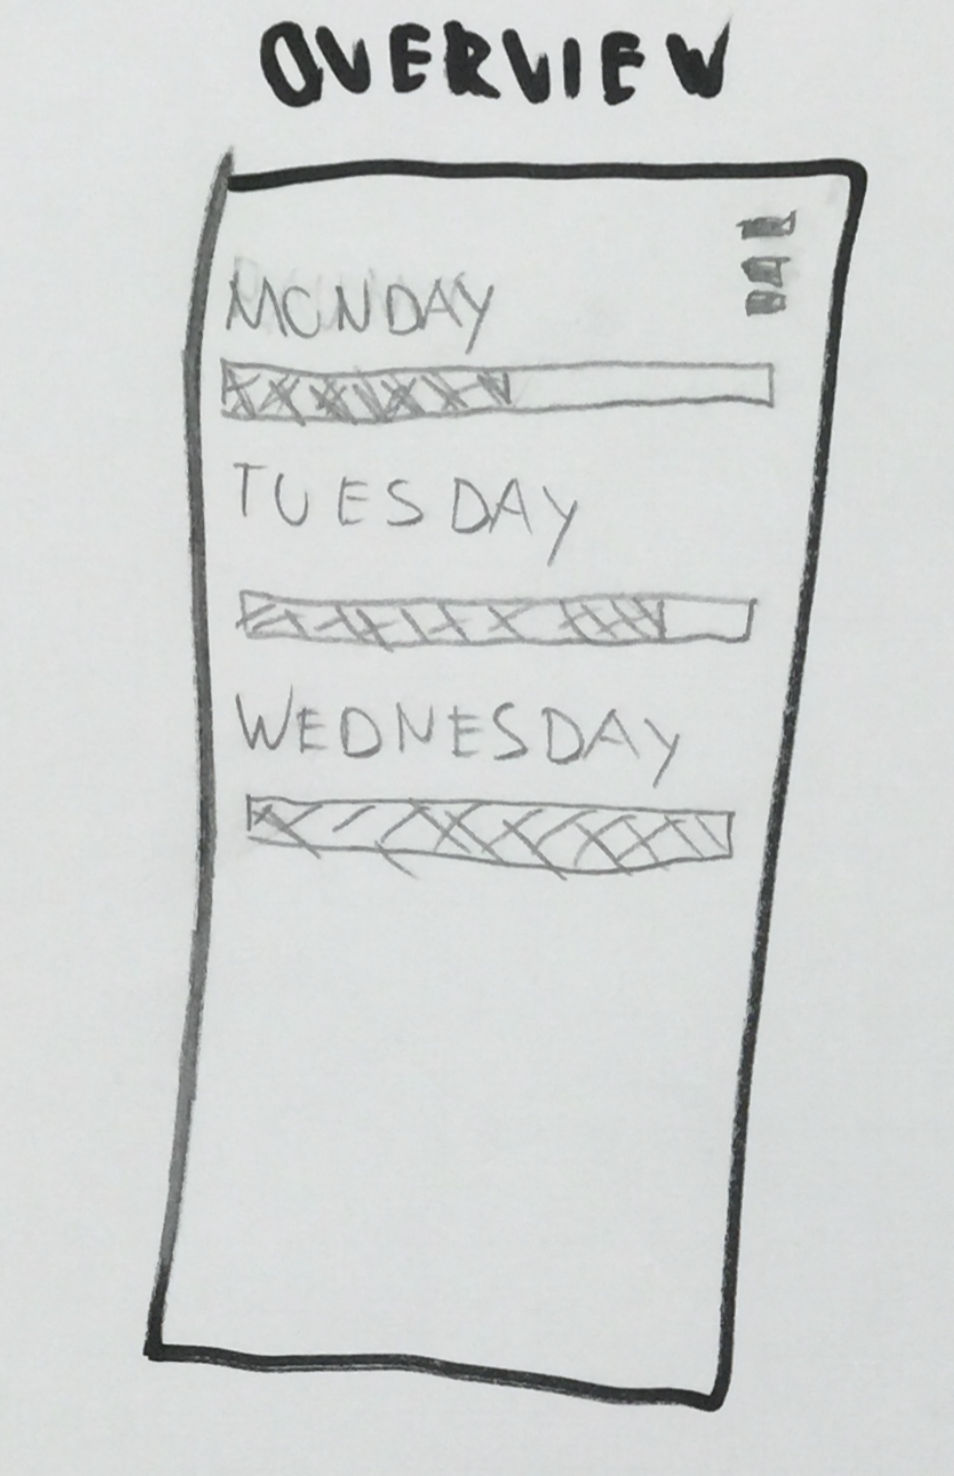 OVERVIEW
MONDAY
TUESDAY
WEDNESDAY